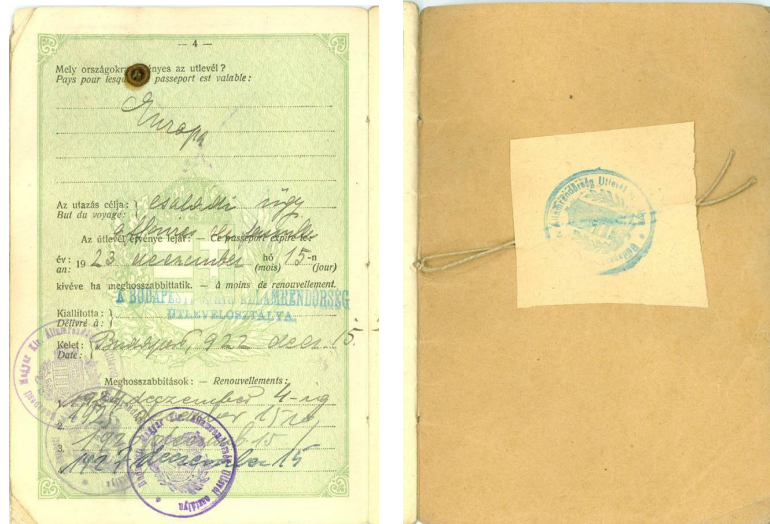 — 4 —
Mely országokra érvényes az utlevél?
Pays pour lesquels passeport est valable:
Európa
Az utazás célja: családi ügy
But du voyage: affaires de famille
Az útlevél érvénye lejár: — Ce passeport expire le:
év: 1923 december hó 15-n
an: (mois) (jour)
kivéve ha meghosszabbittatik. — à moins de renouvellement.
A BUDAPESTI M. KIR. ÁLLAMRENDŐRSÉG
UTLEVÉLOSZTÁLYA.
Kiállitotta:
Délivré à:
Kelet: Budapest, 922 decz. 15.
Date:
Meghosszabbitások: — Renouvellements:
1. 1924 deczember 4-ig
2. 1925 december 15
3. 192 15
1927 deczember 15
Államrendőrség Utlevél